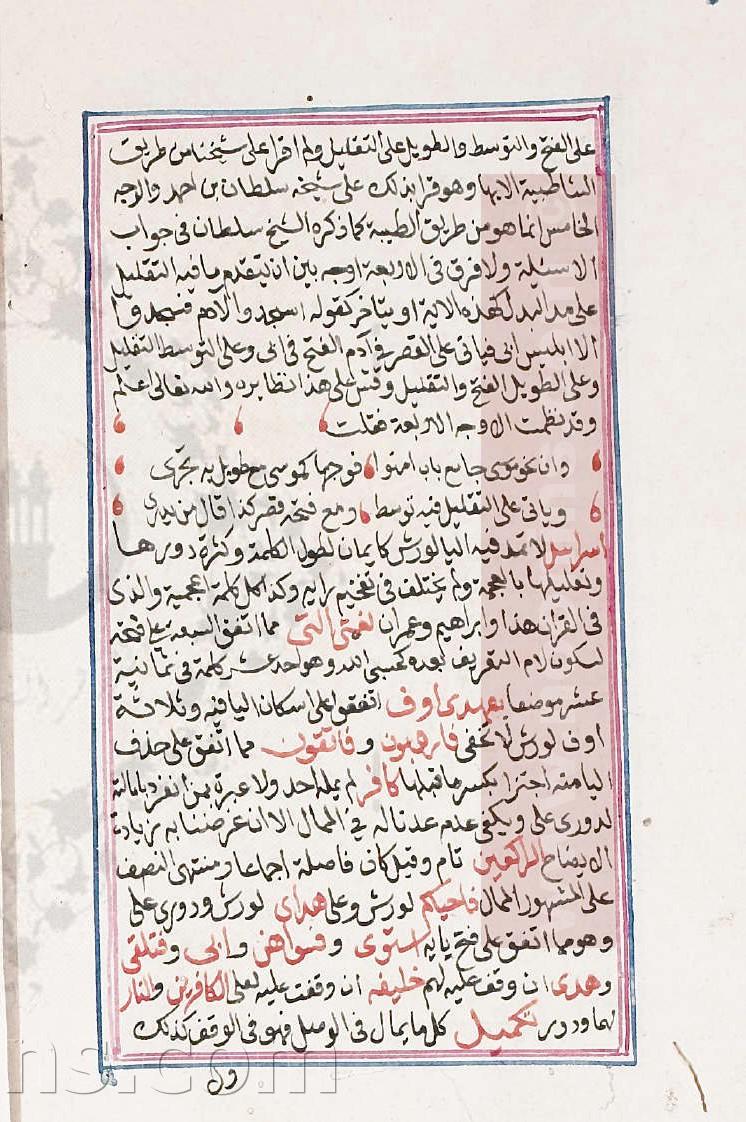 على الفتح والتوسط والطويل على التقليل ولم اقرا على شيخنا من طريق
الشاطبية الا بها وهو قرا بذلك على شيخه سلطان بن احمد والوجه
الخامس انما هو من طريق الطيبة كما ذكره الشيخ سلطان في جواب
الاسئلة ولا فرق في الاربعة اوجه بين ان يتقدم ما فيه التقليل
على مد البدل كهذه الاية او يتاخر كقوله اسجدوا لادم فسجدوا
الا ابليس ابى فياتي على القصر في آدم الفتح في ابى وعلى التوسط التقليل
وعلى الطويل الفتح والتقليل وقس على هذا نظايره والله تعالى اعلم
وقد نظمت الاوجه الاربعة فقلت
وان نحو موسى جا مع باب امنوا فوجها كموسى مع طويل به تجرى
وياتي على التقليل فيه توسط ومع فتحه قصر كذا قال من يدرى
اسرايل لا تمد فيه اليا لورش كايمان لطول الكلمة وكثرة دورها
وتعليلها بالعجمة ولم يختلف في تفخيم رايه وكذا كل كلمة اعجمية والذى
في القران هذا وابراهيم وعمران نعمتي التي مما اتفق السبعة على فتحه
لسكون لام التعريف بعده كحسبي الله وهو احد عشر كلمة في ثمانية
عشر موضعا بعهدى اوف اتفقوا على اسكان اليا فيه وثلاثة
اوف لورش لا تخفى فارهبون و فاتقون مما اتفق على حذف
اليا منه اجتزا بكسر ما قبلها كافر لم يمله احد ولا عبرة بمن انفرد بامالته
لدورى على ويكفى عدم عدنا له في الممال الا ان غرضنا به زيادة
الايضاح الراكعين تام وقيل كاف فاصلة اجماعا ومنتهى النصف
على المشهور الممال فاحياكم لورش وعلى هداى لورش ودورى على
وهو مما اتفق على فتح يايه استوى و فسواهن و ابى و فتلقى
و هدى ان وقف عليه لهم خليفه ان وقفت عليه لعلى الكافرين والنار
لهما ودور تكميل كل ما يمال في الوصل فهو في الوقف كذلك
ns.com